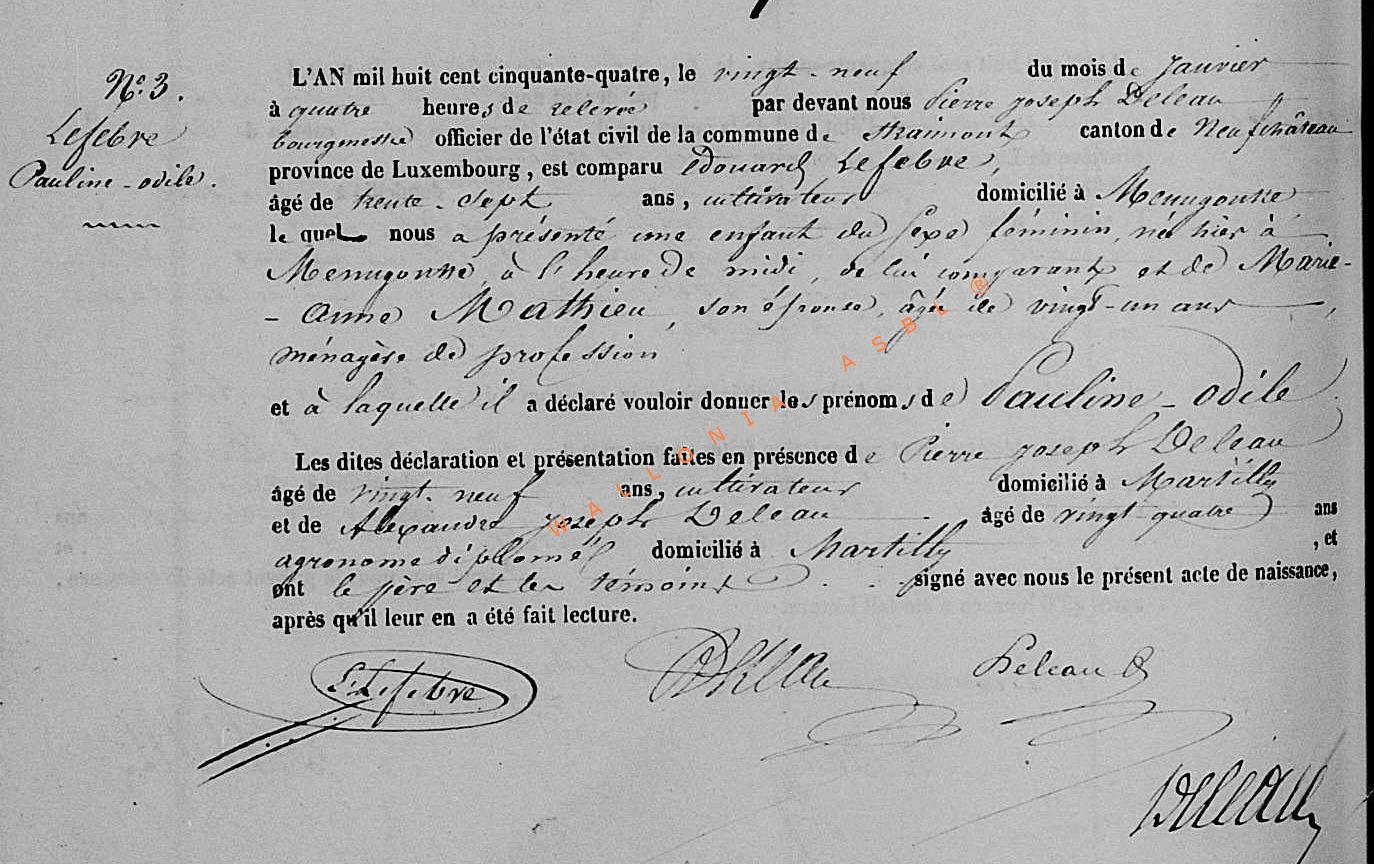 N.º 3.
Lefebvre
Pauline-odile.
L'AN mil huit cent cinquante-quatre, le vingt-neuf du mois de Janvier
à quatre heures de relevée par devant nous Pierre joseph Deleau
bourgmestre officier de l'état civil de la commune de Straimont canton de Neufchâteau
province de Luxembourg, est comparu édouard Lefebvre,
âgé de trente-sept ans, cultivateur domicilié à Menugoutte
le quel nous a présenté une enfant du sexe féminin, née hier à
Menugoutte, à l'heure de midi, de lui comparant et de Marie-
-Anne Mathieu, son épouse, âgée de vingt-un ans,
ménagère de profession
et à laquelle il a déclaré vouloir donner les prénoms de Pauline-odile
Les dites déclaration et présentation faites en présence de Pierre joseph Deleau
âgé de vingt-neuf ans, cultivateur domicilié à Martilly
et de Alexandre joseph Deleau âgé de vingt quatre ans
agronome diplomé domicilié à Martilly, et
ont le père et les témoins signé avec nous le présent acte de naissance,
après qu'il leur en a été fait lecture.
E. Lefebvre Deleau Deleau
Deleau
WALLONIA ASBL ®